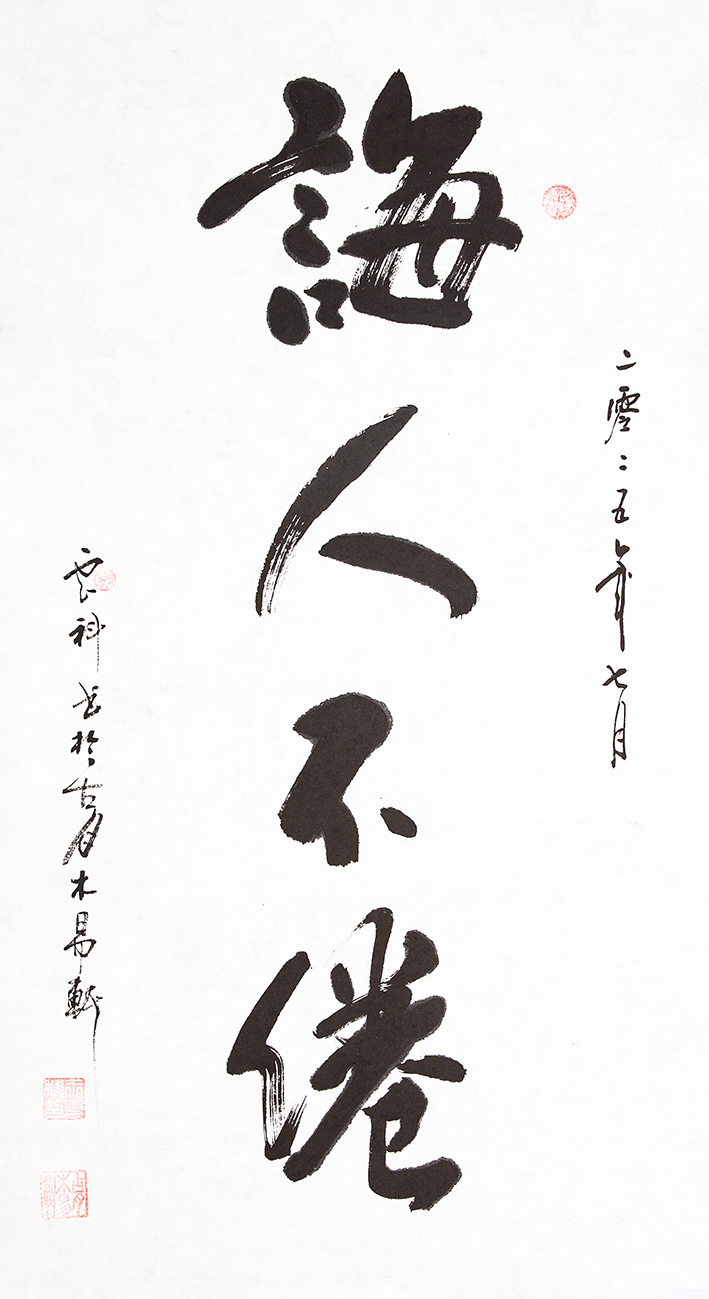 二零二五年七月
誨人不倦
雲科书於古月木易軒